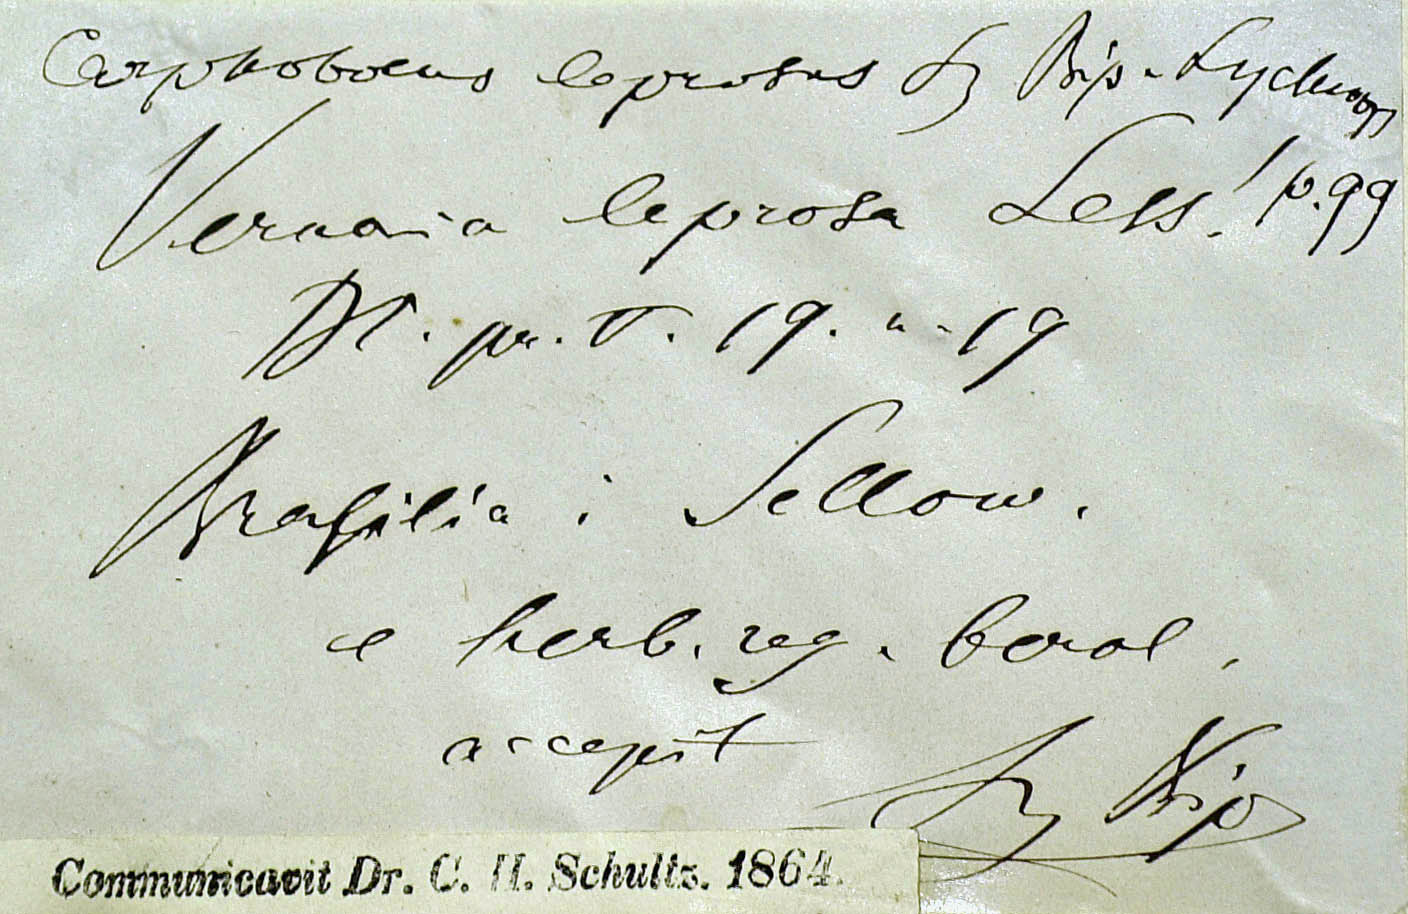 Carphobolus leprosus Sz Bip. Lychnop
Vernonia leprosa Less.! p. 99
DC. pr. V. 19. n. 19
Brasilia: Sellow.
e herb. reg. berol.
accepit
Sz Bip
Communicavit Dr. C. H. Schultz. 1864.